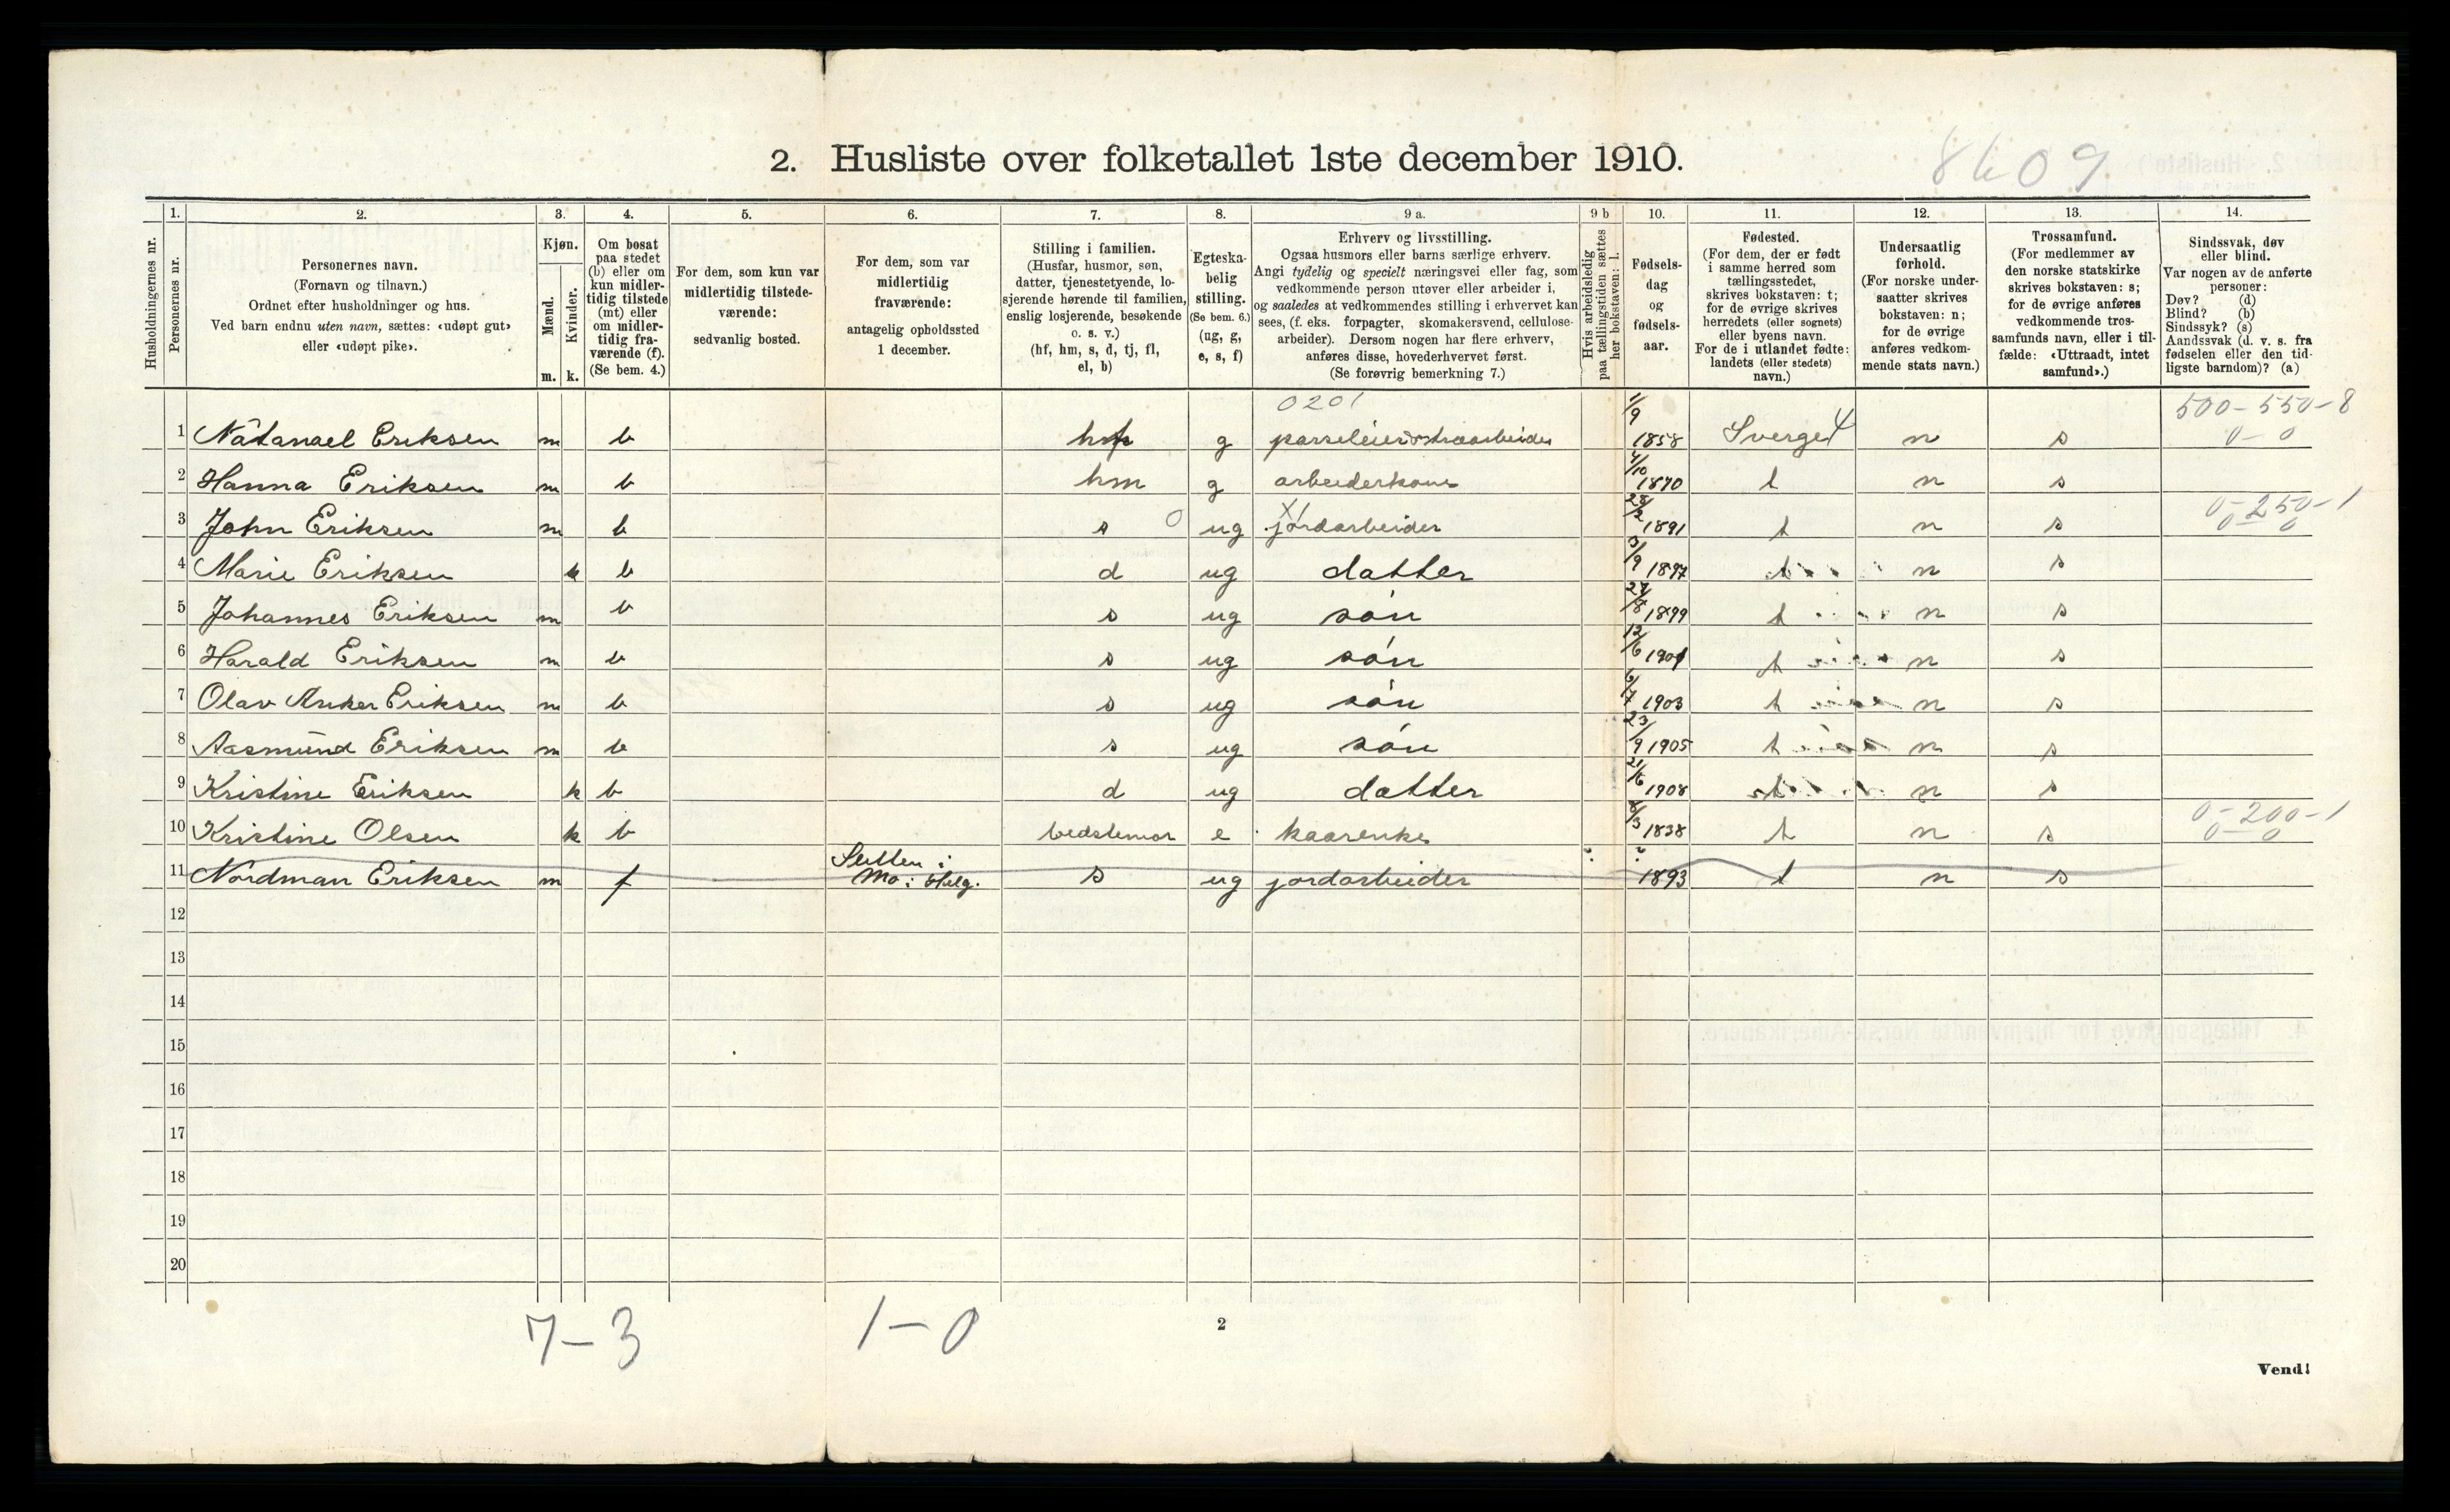 8609
2. Husliste over folketallet 1ste december 1910.
Husholdningernes nr.
1. Personernes nr.
2. Personernes navn.
(Fornavn og tilnavn.)
Ordnet efter husholdninger og hus.
Ved barn endnu uten navn, sættes: «udøpt gut»
eller «udøpt pike».
3. Kjøn.
Mænd. m.
Kvinder. k.
4. Om bosat
paa stedet
(b) eller om
kun midler-
tidig tilstede
(mt) eller
om midler-
tidig fra-
værende (f).
(Se bem. 4.)
5. For dem, som kun var
midlertidig tilstede-
værende:
sedvanlig bosted.
6. For dem, som var
midlertidig
fraværende:
antagelig opholdssted
1 december.
7. Stilling i familien.
(Husfar, husmor, søn,
datter, tjenestetyende, lo-
sjerende hørende til familien,
enslig losjerende, besøkende
o. s. v.)
(hf, hm, s, d, tj, fl,
el, b)
8. Egteska-
belig
stilling.
(Se bem. 6.)
(ug, g,
e, s, f)
9 a. Erhverv og livsstilling.
Ogsaa husmors eller barns særlige erhverv.
Angi tydelig og specielt næringsvei eller fag, som
vedkommende person utøver eller arbeider i,
og saaledes at vedkommendes stilling i erhvervet kan
sees, (f. eks. forpagter, skomakersvend, cellulose-
arbeider). Dersom nogen har flere erhverv,
anføres disse, hovederhvervet først.
(Se forøvrig bemerkning 7.)
9 b Hvis arbeidsledig
paa tællingstiden sættes
her bokstaven: l.
10. Fødsels-
dag
og
fødsels-
aar.
11. Fødested.
(For dem, der er født
i samme herred som
tællingsstedet,
skrives bokstaven: t;
for de øvrige skrives
herredets (eller sognets)
eller byens navn.
For de i utlandet fødte:
landets (eller stedets)
navn.)
12. Undersaatlig
forhold.
(For norske under-
saatter skrives
bokstaven: n;
for de øvrige
anføres vedkom-
mende stats navn.)
13. Trossamfund.
(For medlemmer av
den norske statskirke
skrives bokstaven: s;
for de øvrige anføres
vedkommende tros-
samfunds navn, eller i til-
fælde: «Uttraadt, intet
samfund».)
14. Sindssvak, døv
eller blind.
Var nogen av de anførte
personer:
Døv? (d)
Blind? (b)
Sindssyk? (s)
Aandssvak (d. v. s. fra
fødselen eller den tid-
ligste barndom)? (a)
0201 500-550-8
1 Natanael Eriksen m b hf g parseleier træarbeider 1/9 1858 Sverge 4 n s 0-0
2 Hanna Eriksen m b hm g arbeiderkone 4/10 1870 t n s
3 John Eriksen m b s 0 ug jordarbeider X1 28/2 1891 t n s 0-250-1 0-0
4 Marie Eriksen k b d ug datter 3/9 1897 t n s
5 Johannes Eriksen m b s ug søn 27/8 1899 t n s
6 Harald Eriksen m b s ug søn 12/6 1901 t n s
7 Olav Anker Eriksen m b s ug søn 6/7 1903 t n s
8 Aasmund Eriksen m b s ug søn 23/9 1905 t n s
9 Kristine Eriksen k b d ug datter 21/6 1908 t n s
10 Kristine Olsen k b bedstemor e kaarenke 8/3 1838 t n s 0-200-1 0-0
11 Nordman Eriksen m f Mo i Helg. s ug jordarbeider ? 1893 t n s
12
13
14
15
16
17
18
19
20
7-3 1-0
2
Vend!